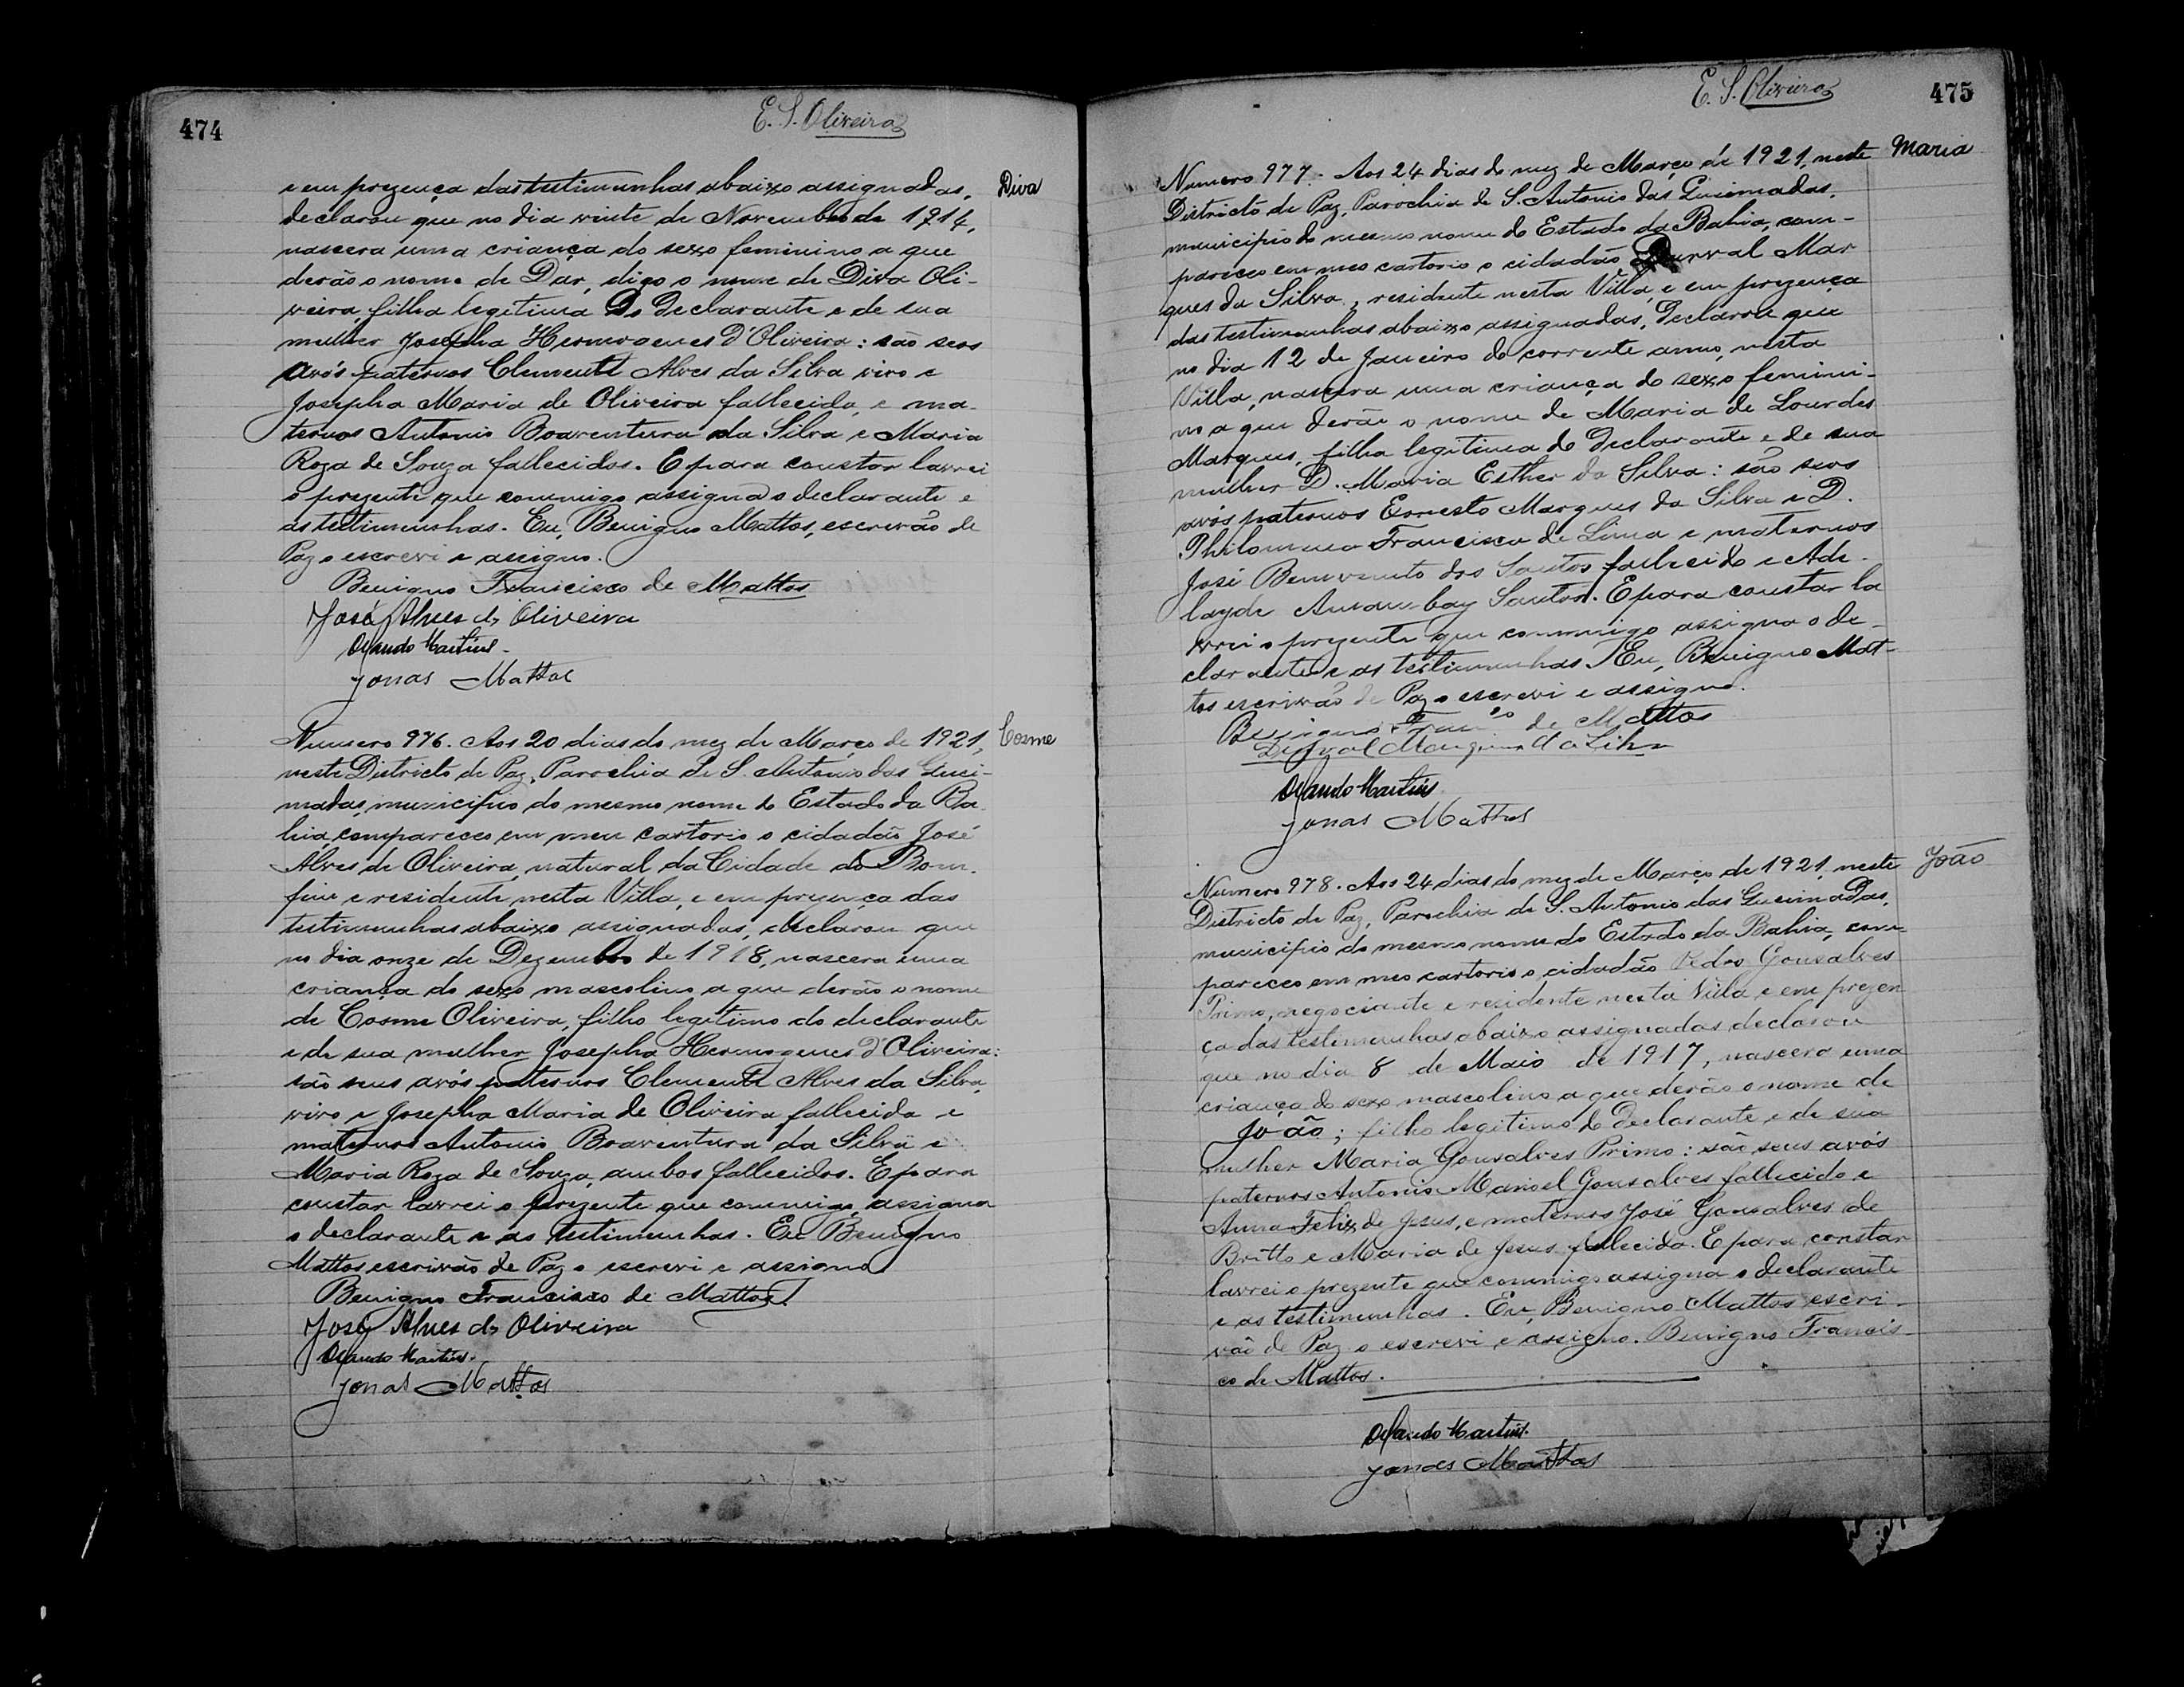 474
E. S. Oliveira
e em prezença das testimunhas abaixo assignadas,
Diva
declarou que no dia vinte de Novembro de 1914,
nascera uma criança do sexo feminino a que
derão o nome de Dar, digo o nome de Diva Oli-
veira, filha legitima do declarante e de sua
mulher Josepha Hermogenes D'Oliveira: são seos
avós paternos Clemente Alves da Silva vivo e
Josepha Maria de Oliveira fallecida, e ma-
ternos Antonio Boaventura da Silva e Maria
Roza de Souza fallecidos. E para constar lavrei
o prezente que commigo assigna o declarante e
as testimunhas. Eu, Benigno Mattos, escrivão de
Paz o escrevi e assigno.
Benigno Francisco de Mattos
José Alves de Oliveira
Orlando Martins.
Jonas Mattos
Numero 976. Aos 20 dias do mez de Março de 1921,
Cosme
neste Districto de Paz, Parochia de S. Antonio das Quei-
madas, municipio do mesmo nome do Estado da Ba-
hia, compareceo em meu cartorio o cidadão José
Alves de Oliveira, natural da Cidade do Bom-
fim e residente nesta Villa, e em prezença das
testimunhas abaixo assignadas, declarou que
no dia onze de Dezembro de 1918, nascera uma
criança do sexo mascolino a que derão o nome
de Cosme Oliveira, filho legitimo do declarante
e de sua mulher Josepha Hermogenes d'Oliveira:
são seus avós paternos Clemente Alves da Silva,
vivo e Josepha Maria de Oliveira fallecida e
maternos Antonio Boaventura da Silva e
Maria Roza de Souza, ambos fallecidos. E para
constar lavrei o prezente que commigo assigna
o declarante e as testimunhas. Eu Benigno
Mattos escrivão de Paz o escrevi e assigno
Benigno Francisco de Mattos
José Alves de Oliveira
Orlando Martins.
Jonas Mattos
E. S. Oliveira
475
Numero 977. Aos 24 dias do mez de Março de 1921, neste
Maria
Districto de Paz, Parochia de S. Antonio das Queimadas,
municipio do mesmo nome do Estado da Bahia, com-
pareceo em meo cartorio o cidadão Durval Mar
ques da Silva, residente nesta Villa, e em prezença
das testimunhas abaixo assignadas, declarou que
no dia 12 de Janeiro do corrente anno, nesta
Villa, nascera uma criança do sexo femini-
no a que derão o nome de Maria de Lourdes
Marques, filha legitima do declarante e de sua
mulher D. Maria Esther da Silva: são seos
avós paternos Ernesto Marques da Silva e D.
Philomena Francisca de Lima e maternos
José Benvenuto dos Santos fallecido e Ade-
layde Santos. E para constar la
vrei o prezente que commigo assigna o de-
clarante e as testimunhas. Eu, Benigno Mat-
tos escrivão de Paz o escrevi e assigno.
Benigno Franco de Mattos
Durval Marques da Silva
Orlando Martins
Jonas Mattos
Numero 978. Aos 24 dias do mez de Março de 1921, neste
João
Districto de Paz, Parochia de S. Antonio das Queimadas,
municipio do mesmo nome do Estado da Bahia, com-
pareceo em meo cartorio o cidadão Pedro Gonsalves
Primo, negociante e residente nesta Villa e em prezen
ça das testimunhas abaixo assignadas declarou
que no dia 8 de Maio de 1917, nascera uma
criança do sexo mascolino a que derão o nome de
João; filho legitimo do declarante e de sua
mulher Maria Gonsalves Primo: são seus avós
paternos Antonio Manoel Gonsalves fallecido e
Anna Felix de Jesus, e maternos José Gonsalves de
Britto e Maria de Jesus fallecida. E para constar
lavrei o prezente que commigo assigna o declarante
e as testimunhas. Eu, Benigno Mattos escri-
vão de Paz o escrevi e assigno. Benigno Francis-
co de Mattos.
Orlando Martins.
Jonas Mattos